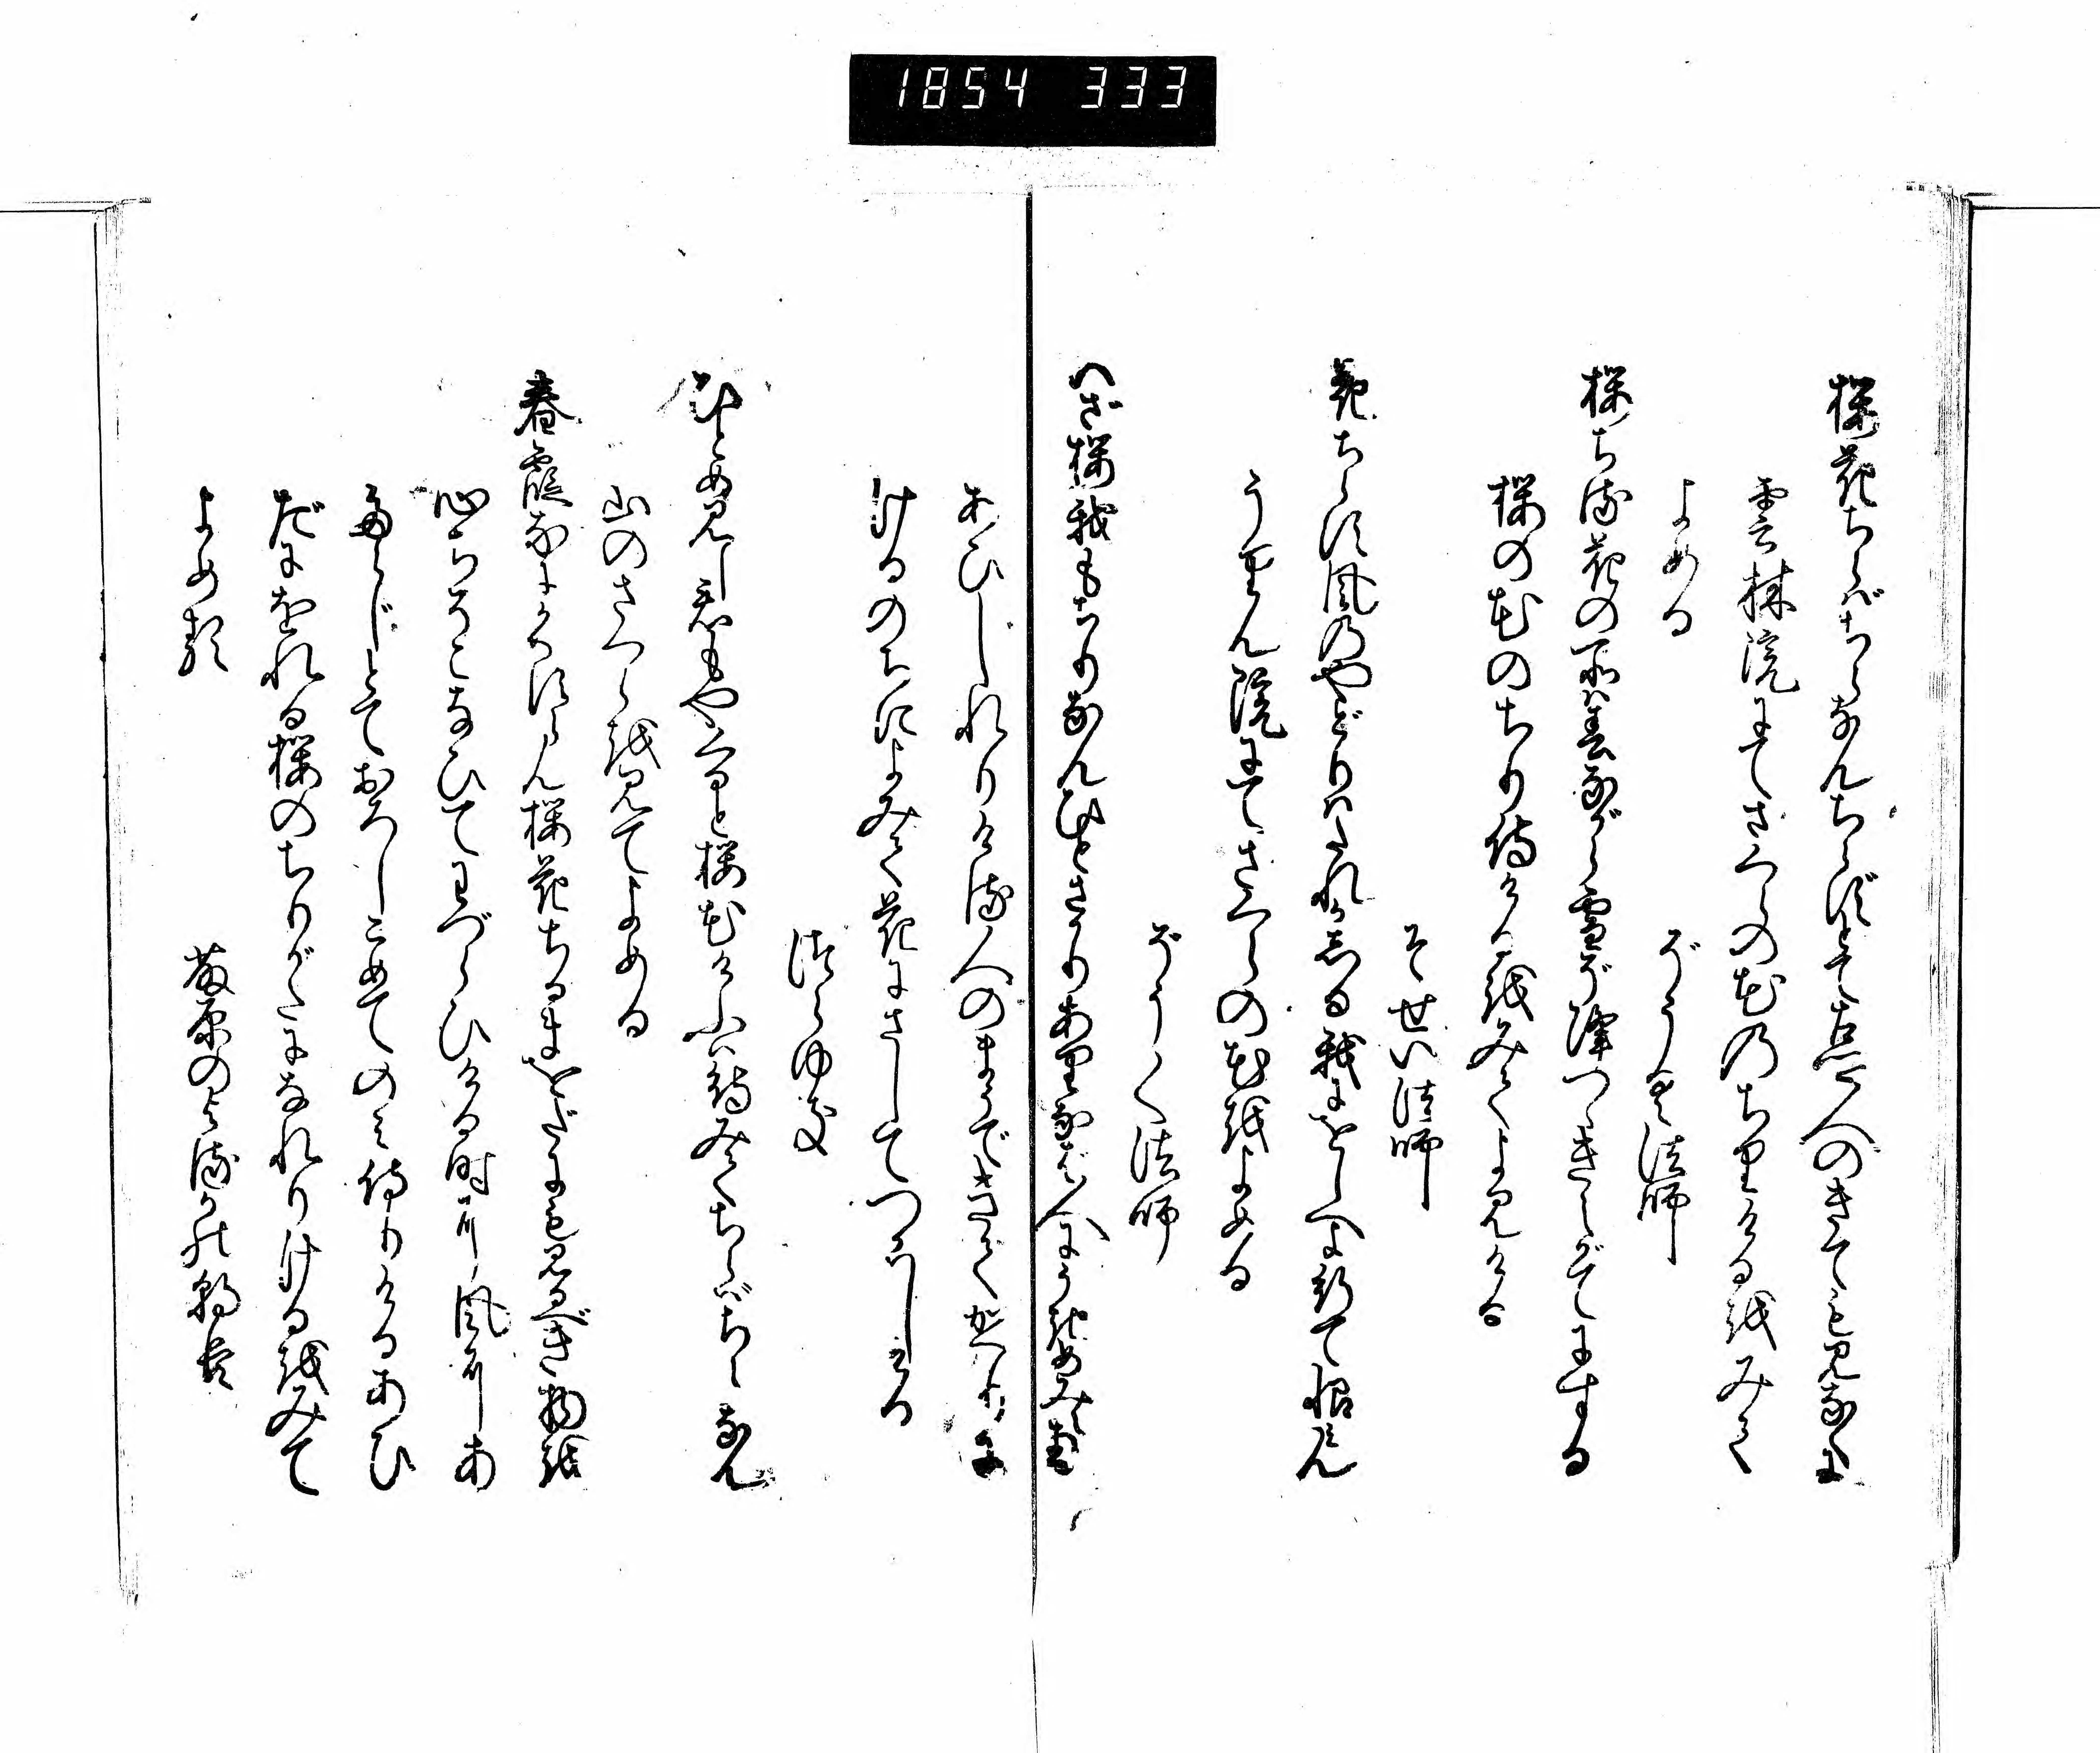 1854 333
桜花ちらばちらなんちらずとて古さと人のきても見なくに
雲林院にてさくらの花のちりける越みて
よめる
ぞうく法師
桜ちる花の所は春ながら雪ぞ降つゝきえがてにする
桜の花のちり侍ける越みてよみける
そせい法師
花ちらす風のやどりはたれかしる我にをしへよ行て恨みん
うりん院にてさくらの花越よめる
ぞうく法師
いざ桜我もちりなんひとさかりありなば人にうきめみえ
あひしれりける人のまうできてかへりに
けるのちによみて花にさしてつかはしける
つらゆき
ひとめ見し君もやくると桜花けふは待みてちらばちらなん
山のさくら越見てよめる
春霞なにかくすらん桜花ちるまをだにも見るべき物越
心ちそこなひてわづらひける時に風にあ
たらじとておろしこめてのみ侍りけるあひ
だにをれる桜のちりがたになれりける越みて
よめる
藤原のよるかの朝臣